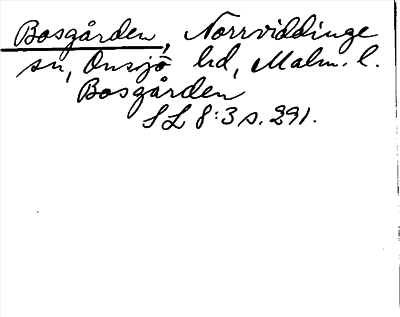 Bosgården, Norrviddinge
sn, Onsjö hd, Malm. l.
Bosgården
SL 8:3 s. 291.